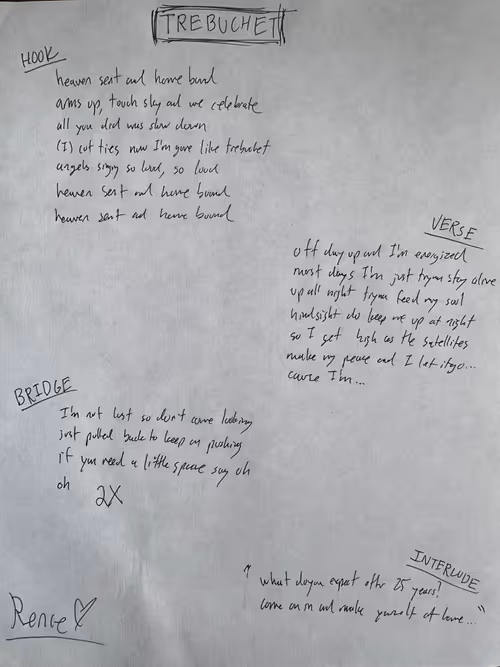 TREBUCHET
HOOK
heaven sent and home bound
arms up, touch sky and we celebrate
all you did was slow down
(I) cut ties now I'm gone like trebuchet
angels singing so loud, so loud
heaven sent and home bound
heaven sent and home bound
VERSE
off day up and I'm energized
most days I'm just tryna stay alive
up all night tryna feed my soul
hindsight do keep me up at night
so I get high as the satellites
make my peace and I let it go...
cause I'm...
BRIDGE
I'm not lost so don't come looking
just pulled back to keep on pushing
if you need a little space say oh
oh
2X
INTERLUDE
"what do you expect after 25 years?
come on in and make yourself at home..."
Rence